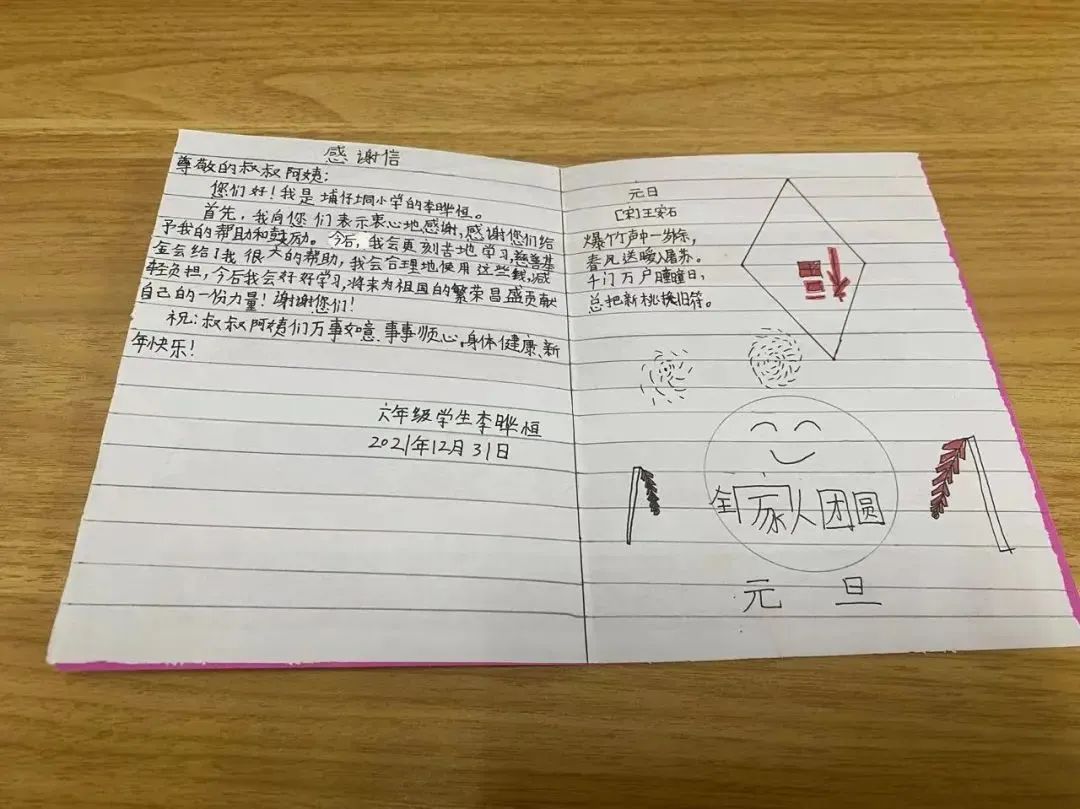 感谢信
尊敬的叔叔阿姨：
您们好！我是埔仔垌小学的李晔恒。
首先，我向您们表示衷心地感谢，感谢您们给
予我的帮助和鼓励。今后，我会更刻苦地学习，慈善基
金会给了我很大的帮助，我会合理地使用这些钱，减
轻负担，今后我会好好学习，将来为祖国的繁荣昌盛贡献
自己的一份力量！谢谢您们！
祝：叔叔阿姨们万事如意、事事顺心，身体健康、新
年快乐！
六年级学生李晔恒
2021年12月31日
元日
[宋]王安石
爆竹声中一岁除，
春风送暖入屠苏。
千门万户曈曈日，
总把新桃换旧符。
福
全家人团圆
元旦